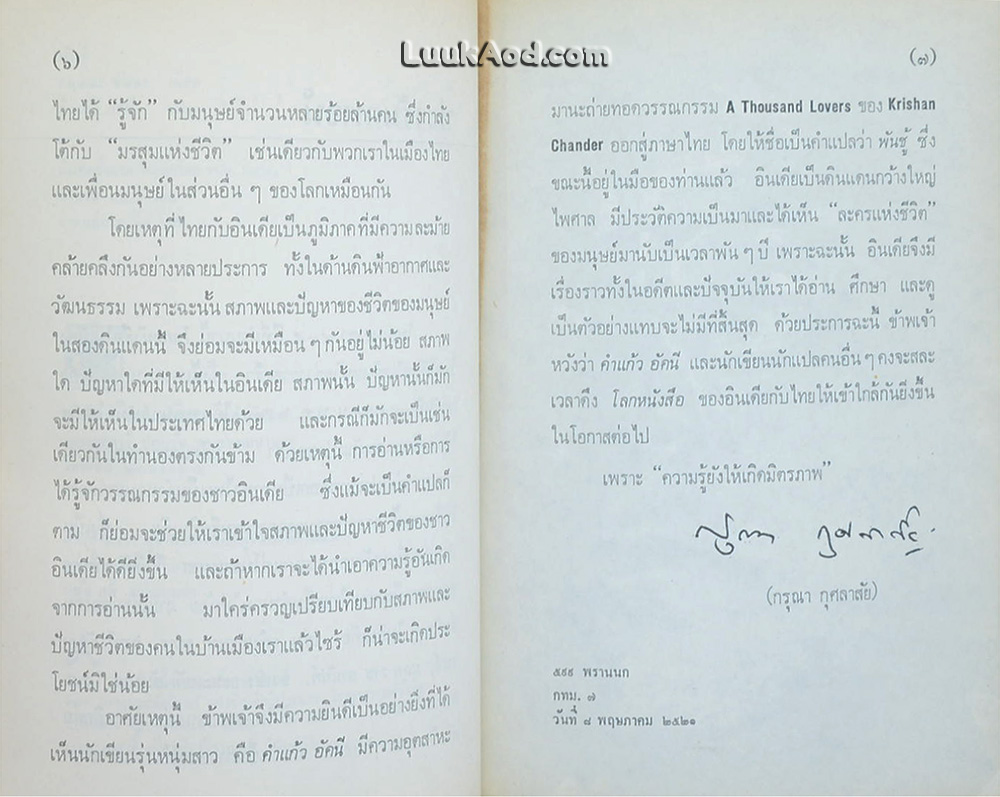 LuukAod.com
(๖)
ไทยได้ “รู้จัก” กับมนุษย์จำนวนหลายร้อยล้านคน ซึ่งกำลัง
โต้กับ “มรสุมแห่งชีวิต” เช่นเดียวกับพวกเราในเมืองไทย
และเพื่อนมนุษย์ในส่วนอื่น ๆ ของโลกเหมือนกัน
โดยเหตุที่ไทยกับอินเดียเป็นภูมิภาคที่มีความละม้าย
คล้ายคลึงกันอย่างหลายประการ ทั้งในด้านดินฟ้าอากาศและ
วัฒนธรรม เพราะฉะนั้น สภาพและปัญหาของชีวิตของมนุษย์
ในสองดินแดนนี้ จึงย่อมจะมีเหมือน ๆ กันอยู่ไม่น้อย สภาพ
ใด ปัญหาใดที่มีให้เห็นในอินเดีย สภาพนั้น ปัญหานั้นก็มัก
จะมีให้เห็นในประเทศไทยด้วย และกรณีก็มักจะเป็นเช่น
เดียวกันในทำนองตรงกันข้าม ด้วยเหตุนี้ การอ่านหรือการ
ได้รู้จักวรรณกรรมของชาวอินเดีย ซึ่งแม้จะเป็นคำแปลก็
ตาม ก็ย่อมจะช่วยให้เราเข้าใจสภาพและปัญหาชีวิตของชาว
อินเดียได้ดียิ่งขึ้น และถ้าหากเราจะได้นำเอาความรู้อันเกิด
จากการอ่านนั้น มาใคร่ครวญเปรียบเทียบกับสภาพและ
ปัญหาชีวิตของคนในบ้านเมืองเราแล้วไซร้ ก็น่าจะเกิดประ
โยชน์มิใช่น้อย
อาศัยเหตุนี้ ข้าพเจ้าจึงมีความยินดีเป็นอย่างยิ่งที่ได้
เห็นนักเขียนรุ่นหนุ่มสาว คือ คำแก้ว อัคนี มีความอุตสาหะ
(๗)
มานะถ่ายทอดวรรณกรรม A Thousand Lovers ของ Krishan
Chander ออกสู่ภาษาไทย โดยให้ชื่อเป็นคำแปลว่า พันชู้ ซึ่ง
ขณะนี้อยู่ในมือของท่านแล้ว อินเดียเป็นดินแดนกว้างใหญ่
ไพศาล มีประวัติความเป็นมาและได้เห็น “ละครแห่งชีวิต”
ของมนุษย์มานับเป็นเวลาพัน ๆ ปี เพราะฉะนั้น อินเดียจึงมี
เรื่องราวทั้งในอดีตและปัจจุบันให้เราได้อ่าน ศึกษา และดู
เป็นตัวอย่างแทบจะไม่มีที่สิ้นสุด ด้วยประการฉะนี้ ข้าพเจ้า
หวังว่า คำแก้ว อัคนี และนักเขียนนักแปลคนอื่น ๆ คงจะสละ
เวลาดึง โลกหนังสือ ของอินเดียกับไทยให้เข้าใกล้กันยิ่งขึ้น
ในโอกาสต่อไป
เพราะ “ความรู้ยังให้เกิดมิตรภาพ”
กรุณา กุศลาสัย
(กรุณา กุศลาสัย)
๕๙๙ พรานนก
กทม. ๗
วันที่ ๘ พฤษภาคม ๒๕๒๑